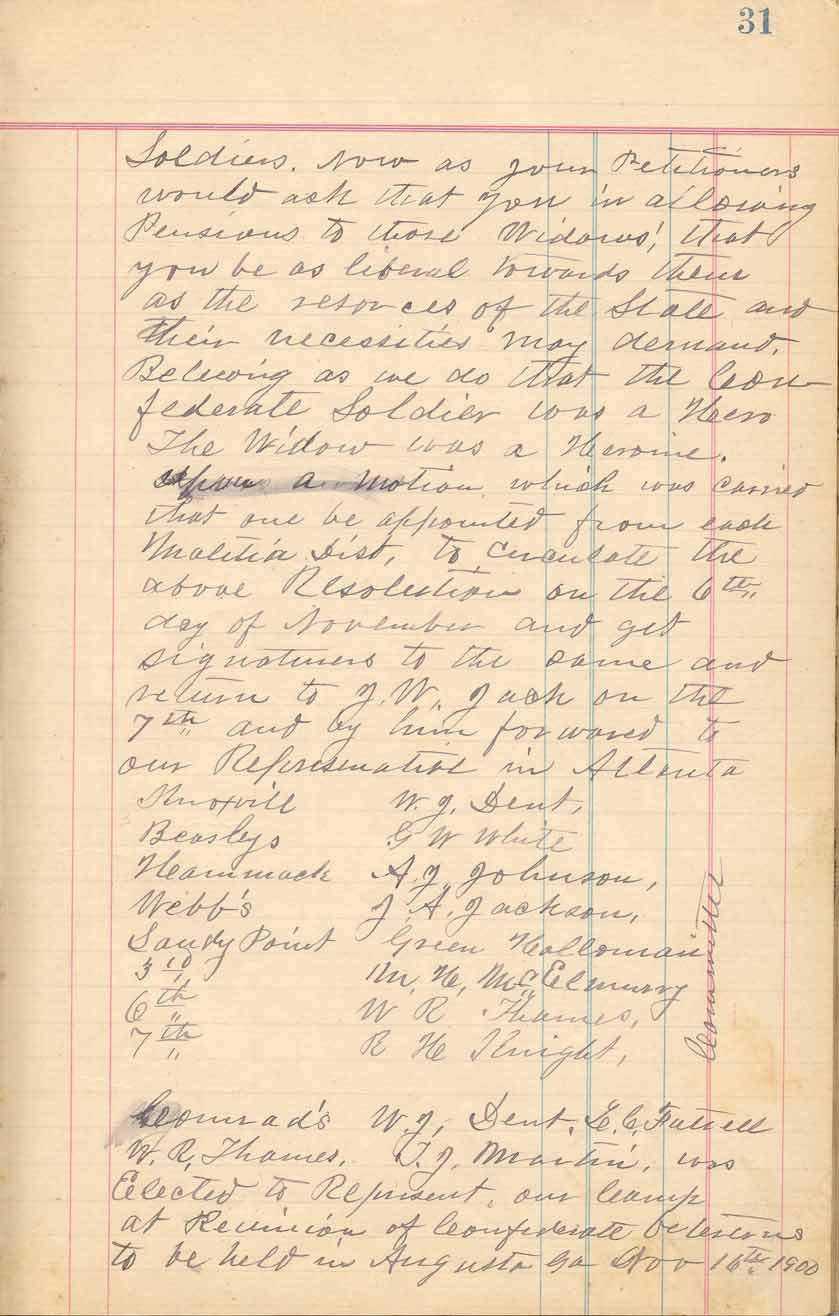 31
Soldiers. Now as your Petitioners
would ask that you in allowing
Pensions to those Widows', that
you be as liberal towards them
as the resorces of the State and
their necessities may demand.
Beleivig as we do that the Con-
federate Soldier was a Hero
The Widow was a Heroine.
upon a Motion which was carried
that one be appointed from each
Malitia Dist, to Circulate the
above Resolution on the 6th
day of November and get
signaturers to the same and
return to J. W. Jack on the
7th and by him forwared to
our Representative in Atlanta
Knoxvill W. J. Dent,
Beasleys G W White
Hammack A. J. Johnson,
Webb's J. A. Jackson,
Sandy Point Green Holloman
3rd M. H. McElmurry
6th W R Thames,
7th R H Knight,
Committee
Comrad's W. J. Dent, E. C. Futrell
W. R. Thames, T. J. Martin, was
Elected to Represent our Camp
at Reunion of Confederate Veterans
to be held in Augusta Ga Nov 16th 1900